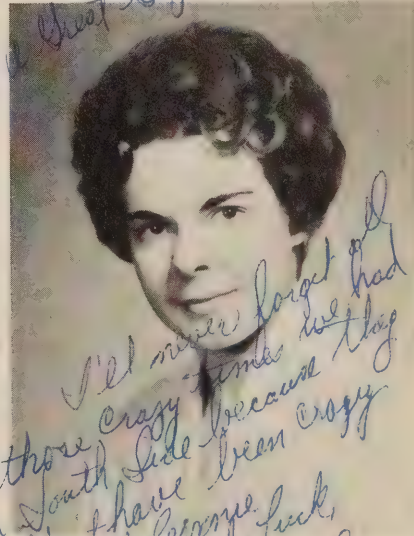 a Great
I'll never forget all
those crazy times we had
South Side because they
have been crazy
luck,